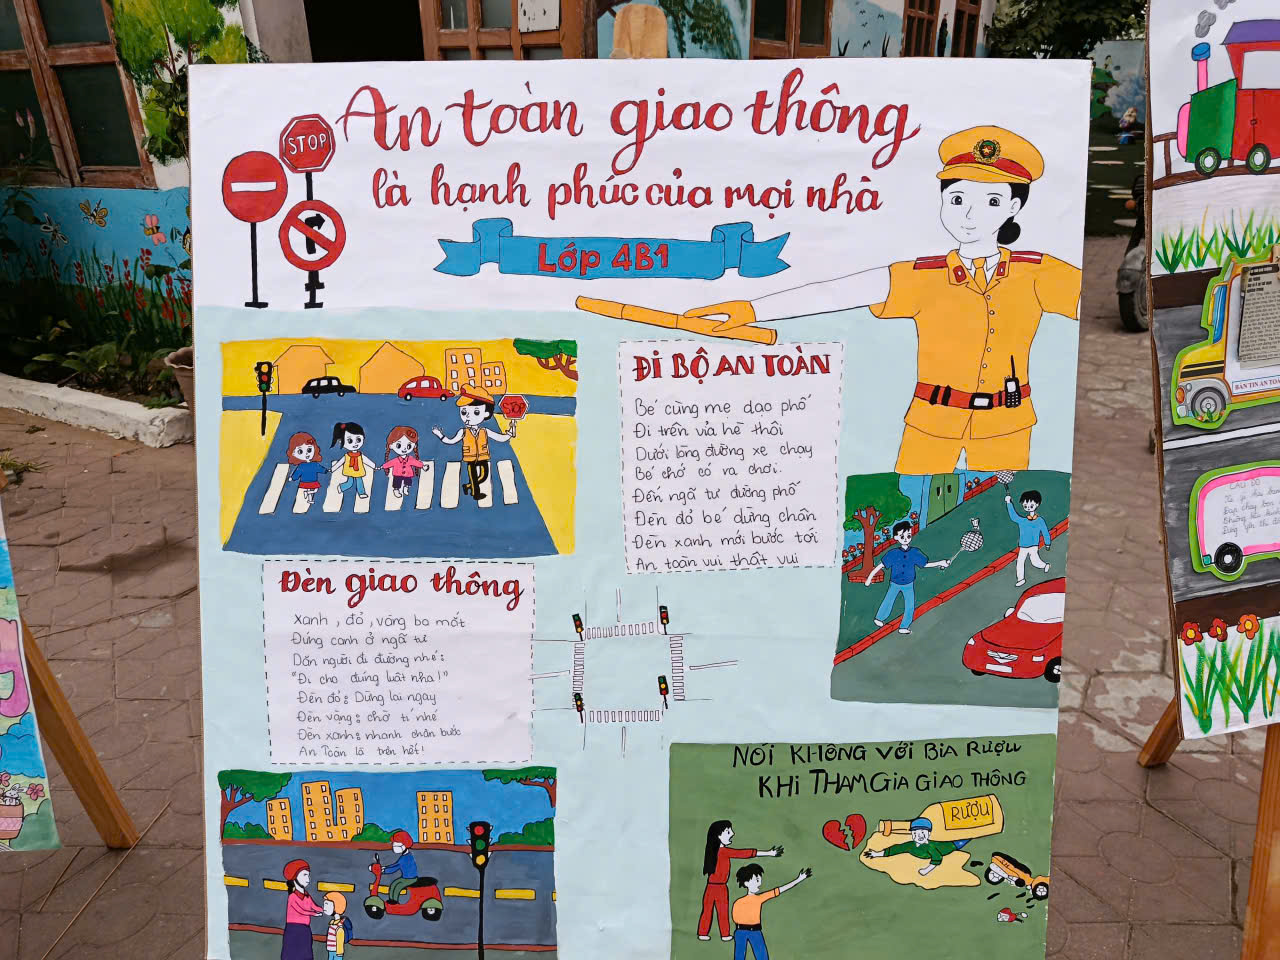 An toàn giao thông
là hạnh phúc của mọi nhà
STOP
Lớp 4B1
STOP
ĐI BỘ AN TOÀN
Bé cùng mẹ dạo phố
Đi trên vỉa hè thôi
Dưới lòng đường xe chạy
Bé chớ có ra chơi.
Đến ngã tư đường phố
Đèn đỏ bé dừng chân
Đèn xanh mới bước tới
An toàn vui thật vui
Đèn giao thông
Xanh, đỏ, vàng ba mắt
Đứng canh ở ngã tư
Dặn người đi đường nhé:
"Đi cho đúng luật nha!"
Đèn đỏ: Dừng lại ngay
Đèn vàng: chờ tí nhé
Đèn xanh: nhanh chân bước
An Toàn là trên hết!
NÓI KHÔNG VỚI BIA RƯỢU
KHI THAM GIA GIAO THÔNG
RƯỢU
BẢN TIN AN TOÀ
CÂU ĐỐ